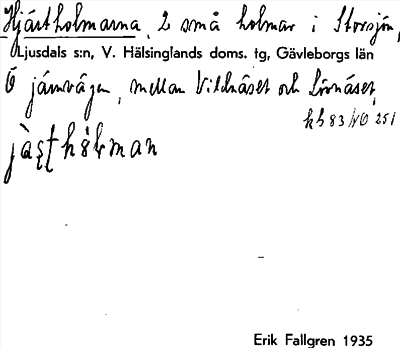 Hjärtholmarna, 2 små holmar i Storsjön,
Ljusdals s:n, V. Hälsinglands doms. tg, Gävleborgs län
Ö järnvägen, mellan Vildnäset och Lövnäset,
kb 83 NO 251
Erik Fallgren 1935